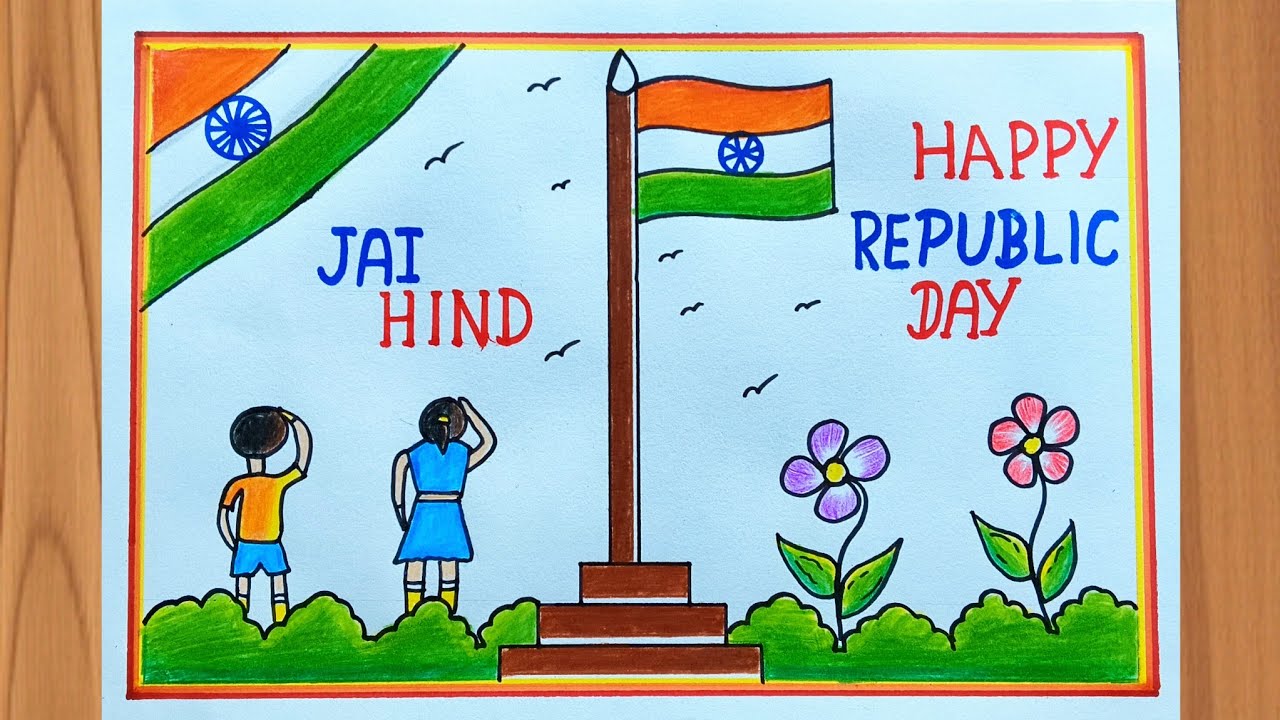 JAI
HIND
HAPPY
REPUBLIC
DAY